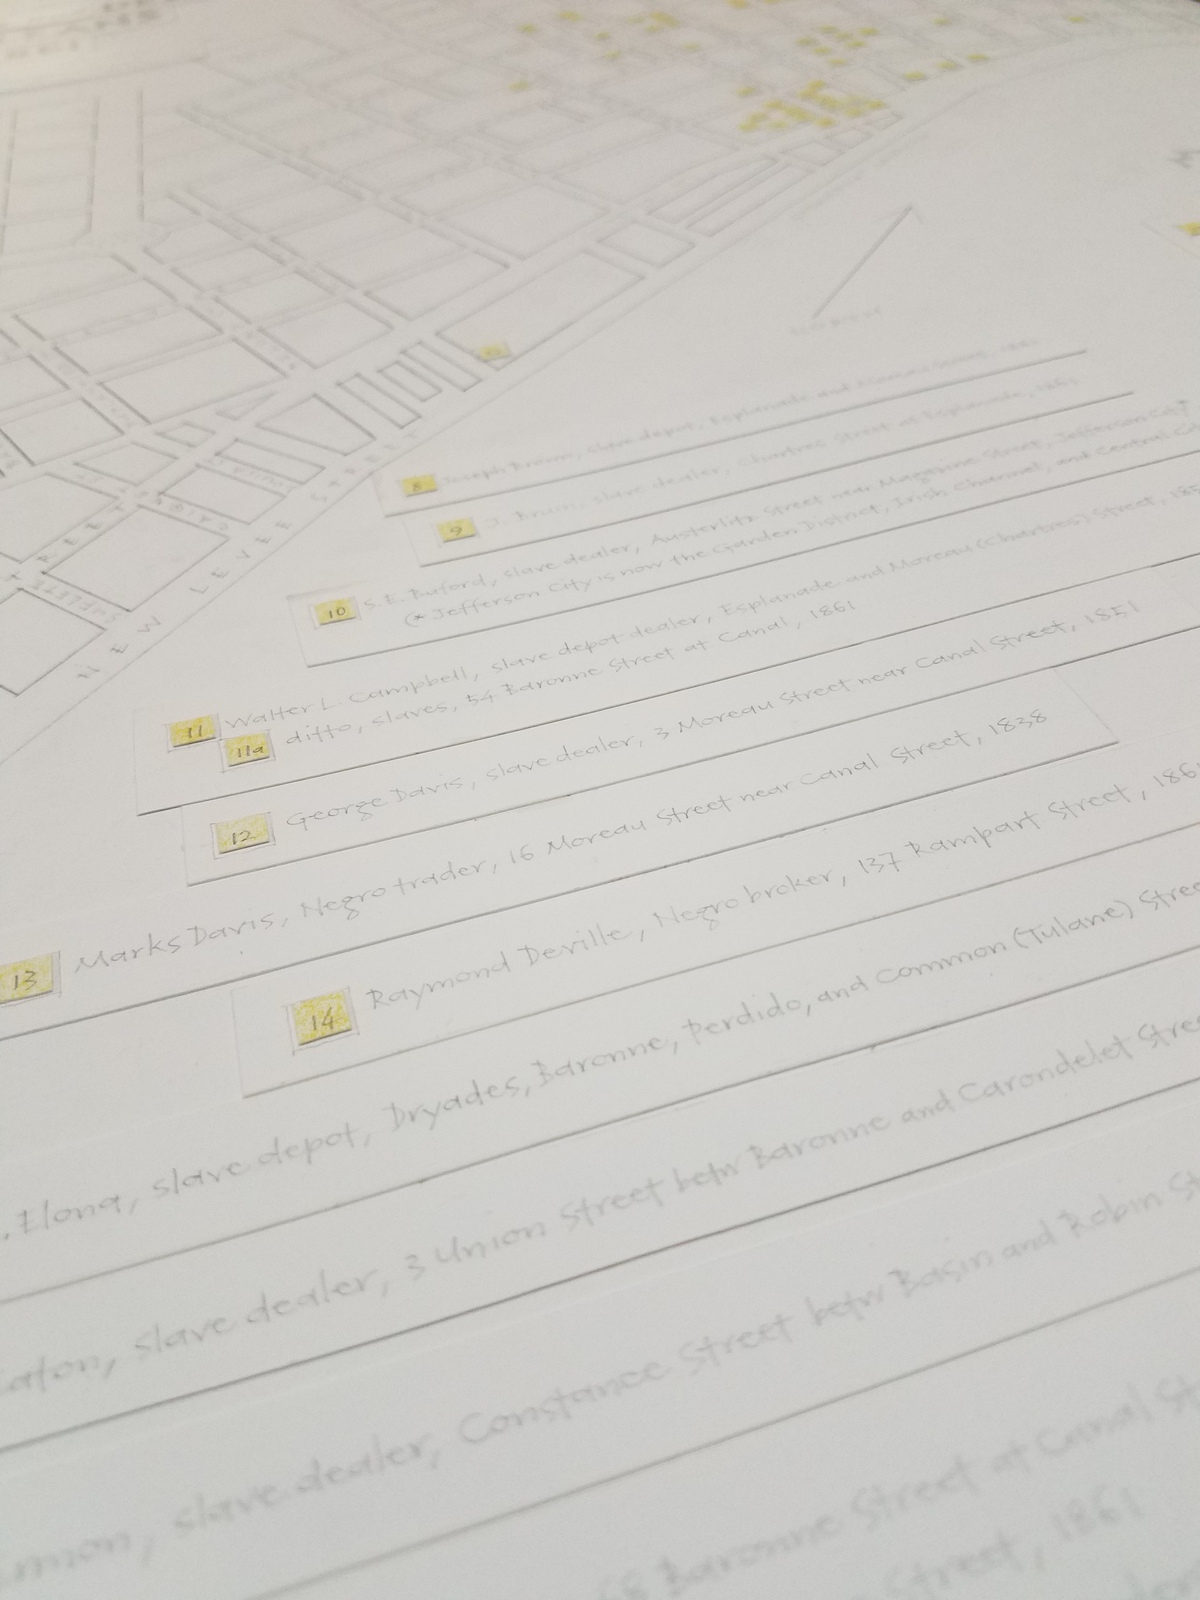 NEW LEVEE STREET
8 Joseph Bruin, slave depot, Esplanade and
9 J. Bruin, slave dealer, Chartres Street at Esplanade, 1861
10 S. E. Buford, slave dealer, Austerlitz Street near Magazine Street, Jefferson City*
(* Jefferson City is now the Garden District, Irish Channel, and Central
11 Walter L. Campbell, slave depot dealer, Esplanade and Moreau (Chartres) Street,
11a ditto, slaves, 54 Baronne Street at Canal, 1861
12 George Davis, slave dealer, 3 Moreau Street near Canal Street, 1851
13 Marks Davis, Negro trader, 16 Moreau Street near Canal Street, 1838
14 Raymond Deville, Negro broker, 137 Rampart Street, 186
Elona, slave depot, Dryades, Baronne, Perdido, and Common (Tulane) Stree
eaton, slave dealer, 3 Union Street betw Baronne and Carondelet Stree
mon, slave dealer, Constance Street betw Basin and Robin St
68 Baronne Street at Canal St
Street, 1861